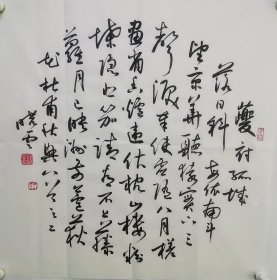 夔府孤城
落日斜每依南斗
望京華聽猿實下三
聲淚奉使虛隨八月槎
畫省香爐違伏枕山樓粉
堞隱悲笳請看石上藤
蘿月已映洲前蘆荻
花杜甫秋興八首之二
曉雲